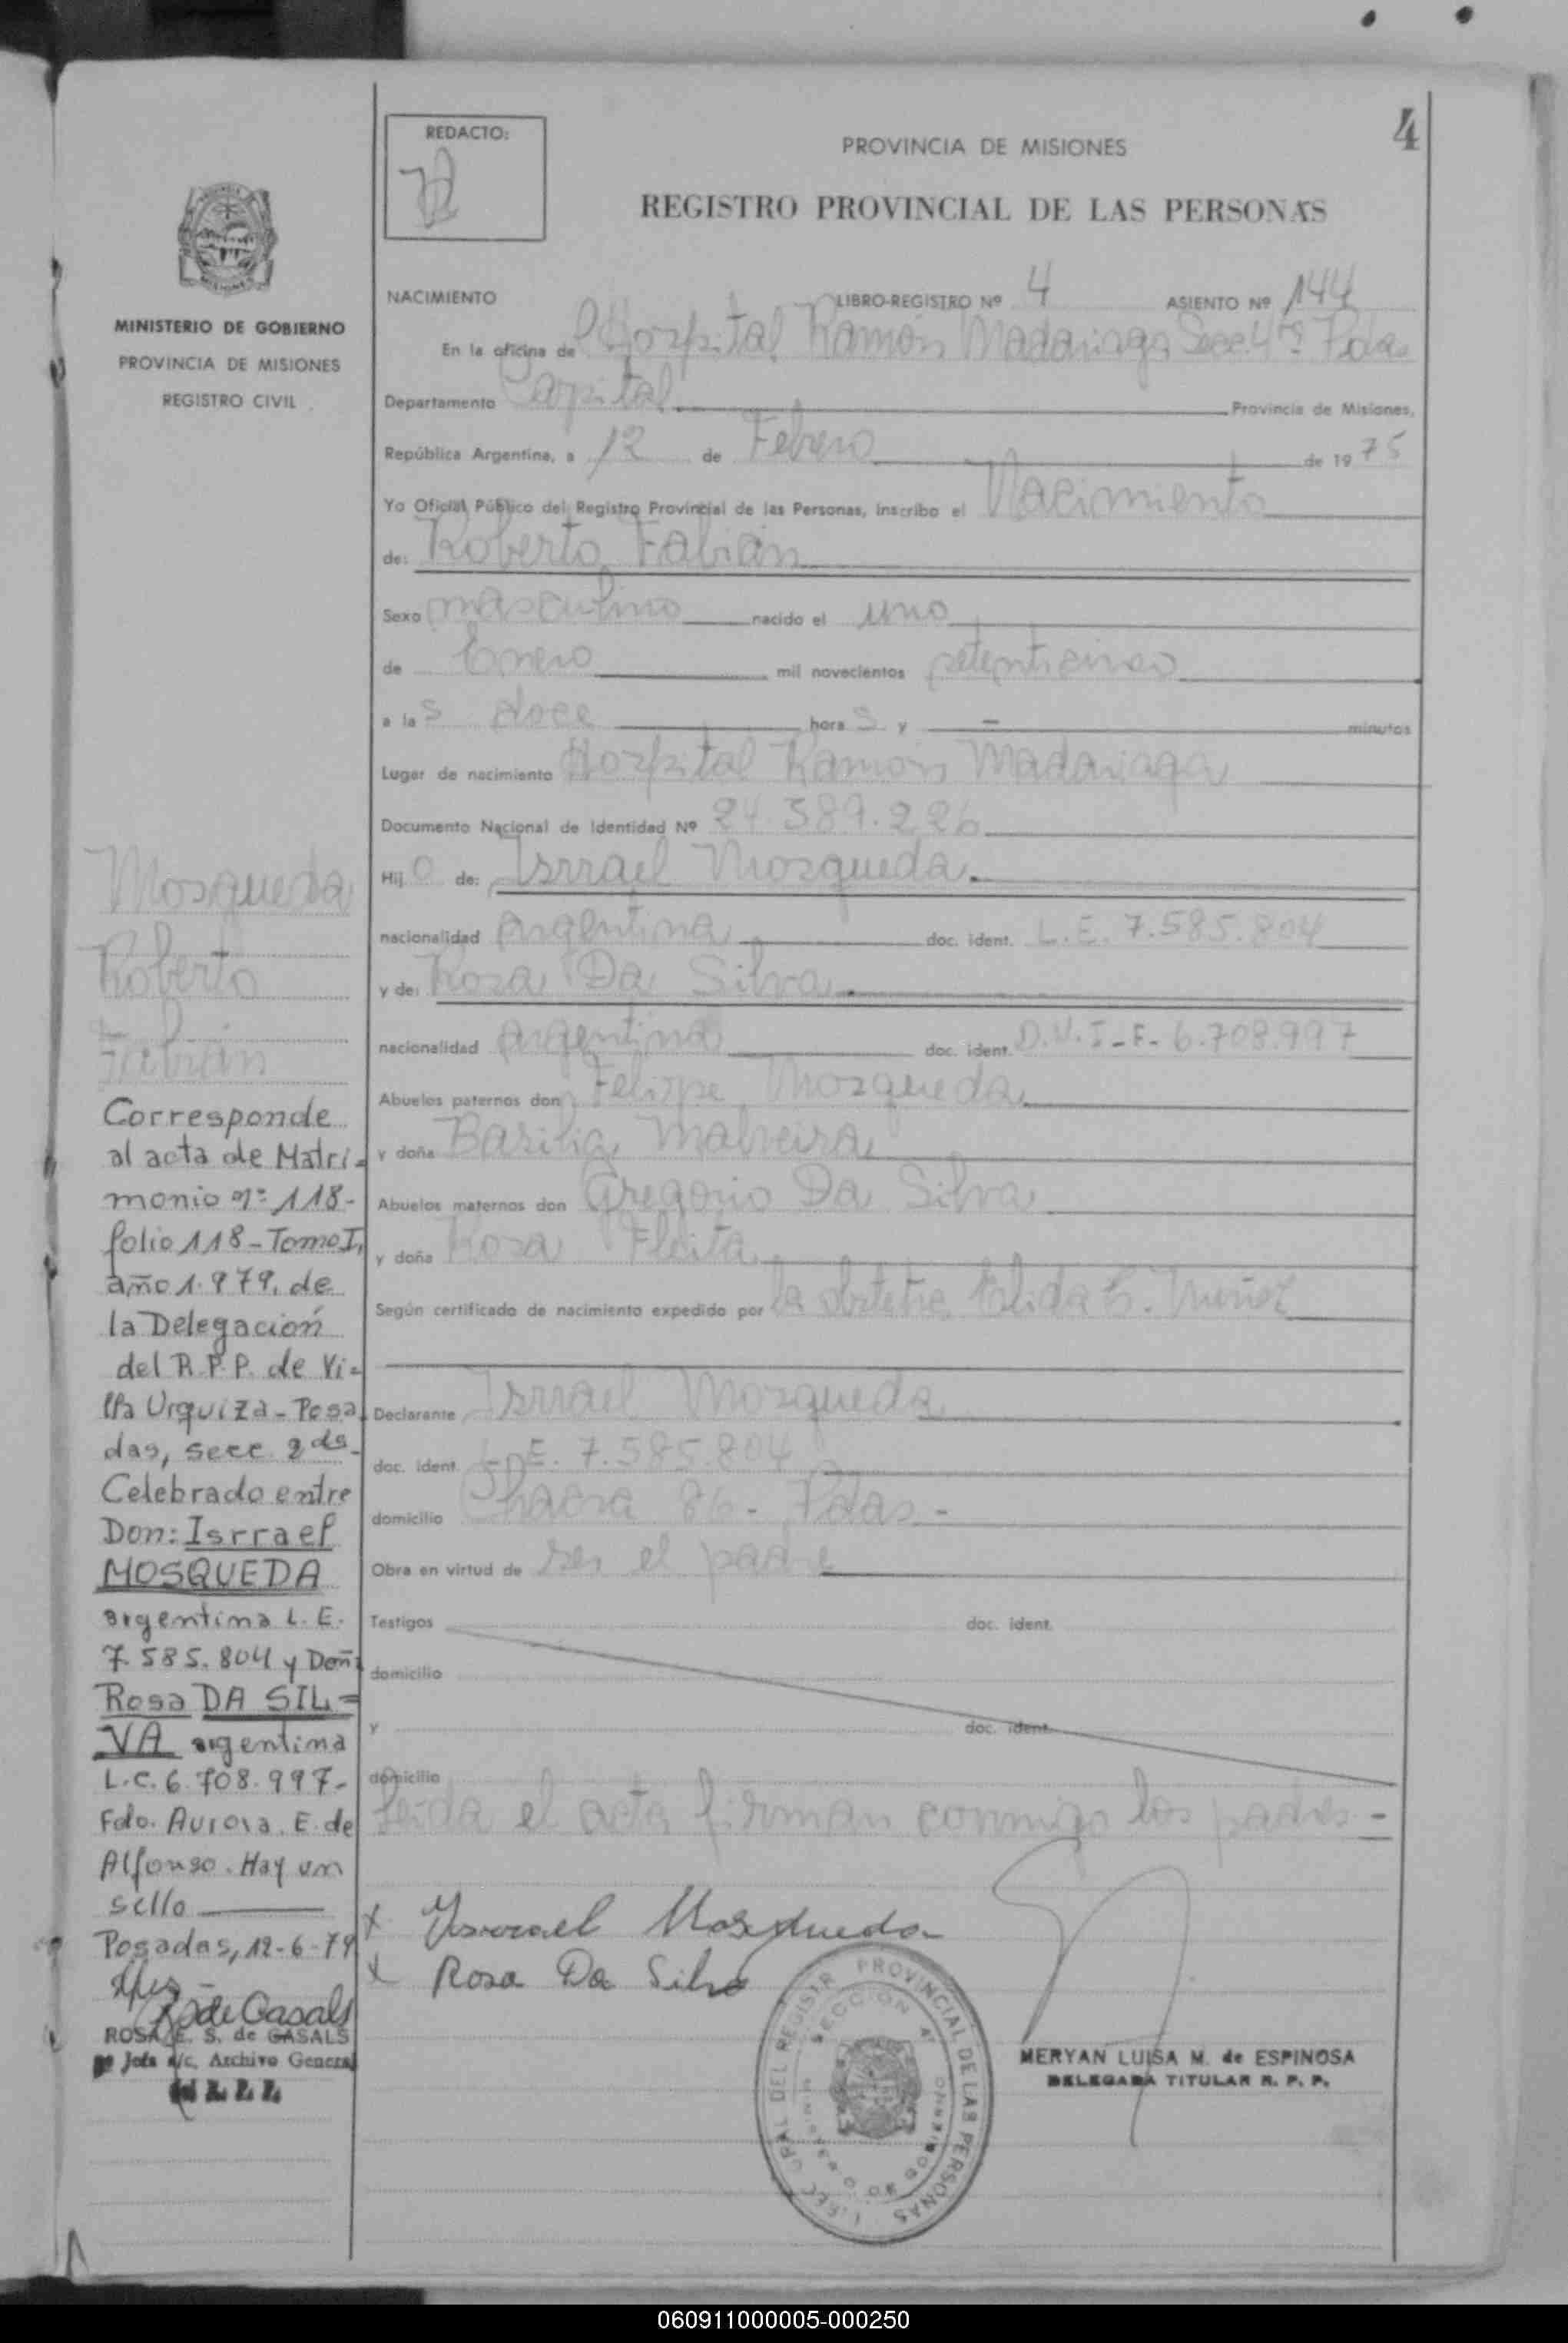 4
REDACTO:
PROVINCIA DE MISIONES
REGISTRO PROVINCIAL DE LAS PERSONAS
MINISTERIO DE GOBIERNO
PROVINCIA DE MISIONES
REGISTRO CIVIL
NACIMIENTO LIBRO-REGISTRO Nº 4 ASIENTO Nº 144
En la oficina de Hospital Ramón Madariaga Secc. 4ta Pdas
Departamento Capital Provincia de Misiones,
República Argentina, a 12 de Febrero de 19 75
Yo Oficial Público del Registro Provincial de las Personas, inscribo el Nacimiento
de: Roberto Fabián
Sexo masculino nacido el uno
de Enero mil novecientos setenticinco
a las doce horas y — minutos
Lugar de nacimiento Hospital Ramón Madariaga
Documento Nacional de Identidad Nº 24.389.226
Hijo de: Isrrael Mosqueda.
nacionalidad argentina doc. ident. L.E. 7.585.804
y de: Rosa Da Silva.
nacionalidad argentina doc. ident. D.N.I-F- 6.708.997
Abuelos paternos don Felispe Mosqueda
y doña Basilia Malveira
Abuelos maternos don Gregorio Da Silva
y doña Rosa Fleita
Según certificado de nacimiento expedido por la obstetra Elida C. Nuñez
Declarante Isrrael Mosqueda
doc. ident. L.E. 7.585.804
domicilio Chacra 86 - Pdas -
Obra en virtud de ser el padre
Testigos doc. ident.
domicilio
y doc. ident.
domicilio
Leída el acta firman conmigo los padres -
x Ysrrael Mosqueda
x Rosa Da Silva
MERYAN LUISA M. de ESPINOSA
DELEGADA TITULAR R. P. P.
PROVINCIAL DE LAS PERSONAS
SECCION 4ª
Mosqueda
Roberto
Fabián
Corresponde
al acta de Matri=
monio nº 118-
folio 118-Tomo I,
año 1.979, de
la Delegación
del R.P.P. de Vi=
lla Urquiza-Posa
das, secc. 2da-
Celebrado entre
Don: Isrrael
MOSQUEDA
argentina L.E.
7.585.804 y Doña
Rosa DA SIL=
VA argentina
L.C. 6.708.997-
Fdo. Aurora. E. de
Alfonso. Hay un
sello
Posadas, 12-6-79
R de Casals
ROSA E. S. de CASALS
Jefa a/c. Archivo General
del R. P. P.
060911000005-000250